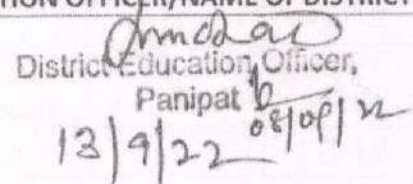 TION OFFICER/NAME OF DISTRICT
District Education Officer,
Panipat
08/09/22
13/9/22